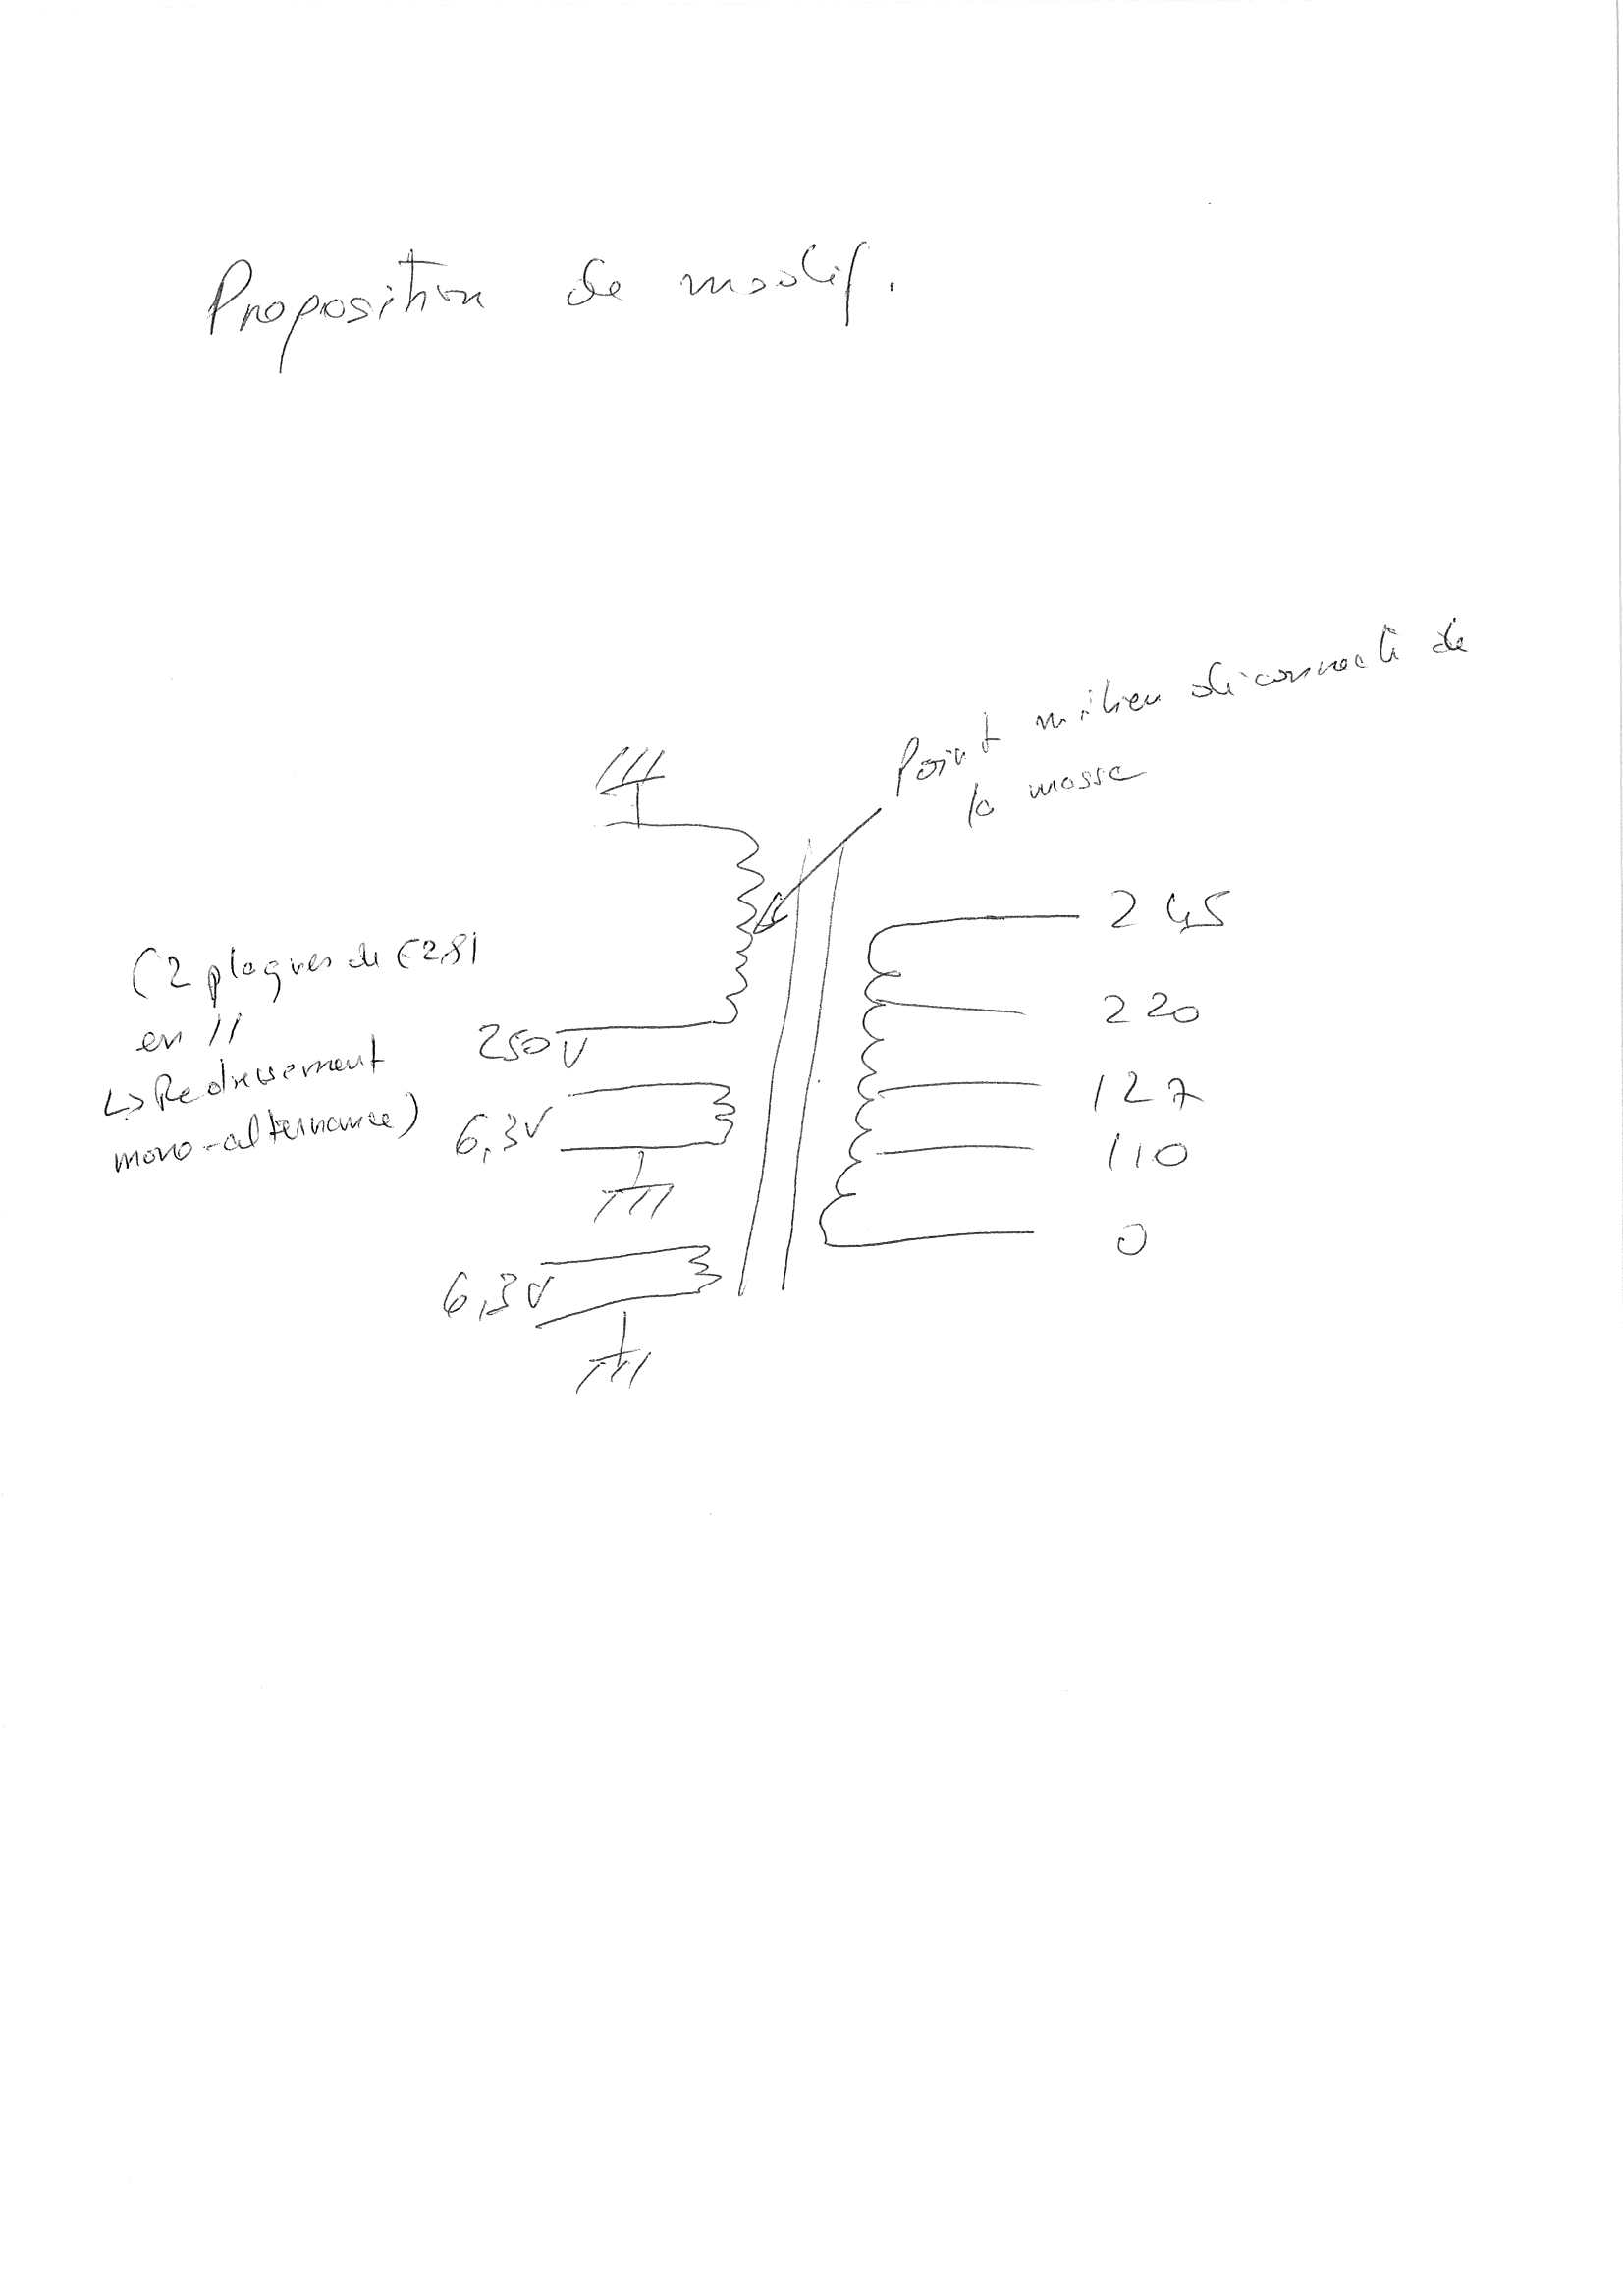 Proposition de modif.
Point milieu déconnecté de
la masse
245
(2 plaques de EZ81
en //
220
250V
↳ Redressement
127
mono-alternance)
6,3V
110
0
6,3V